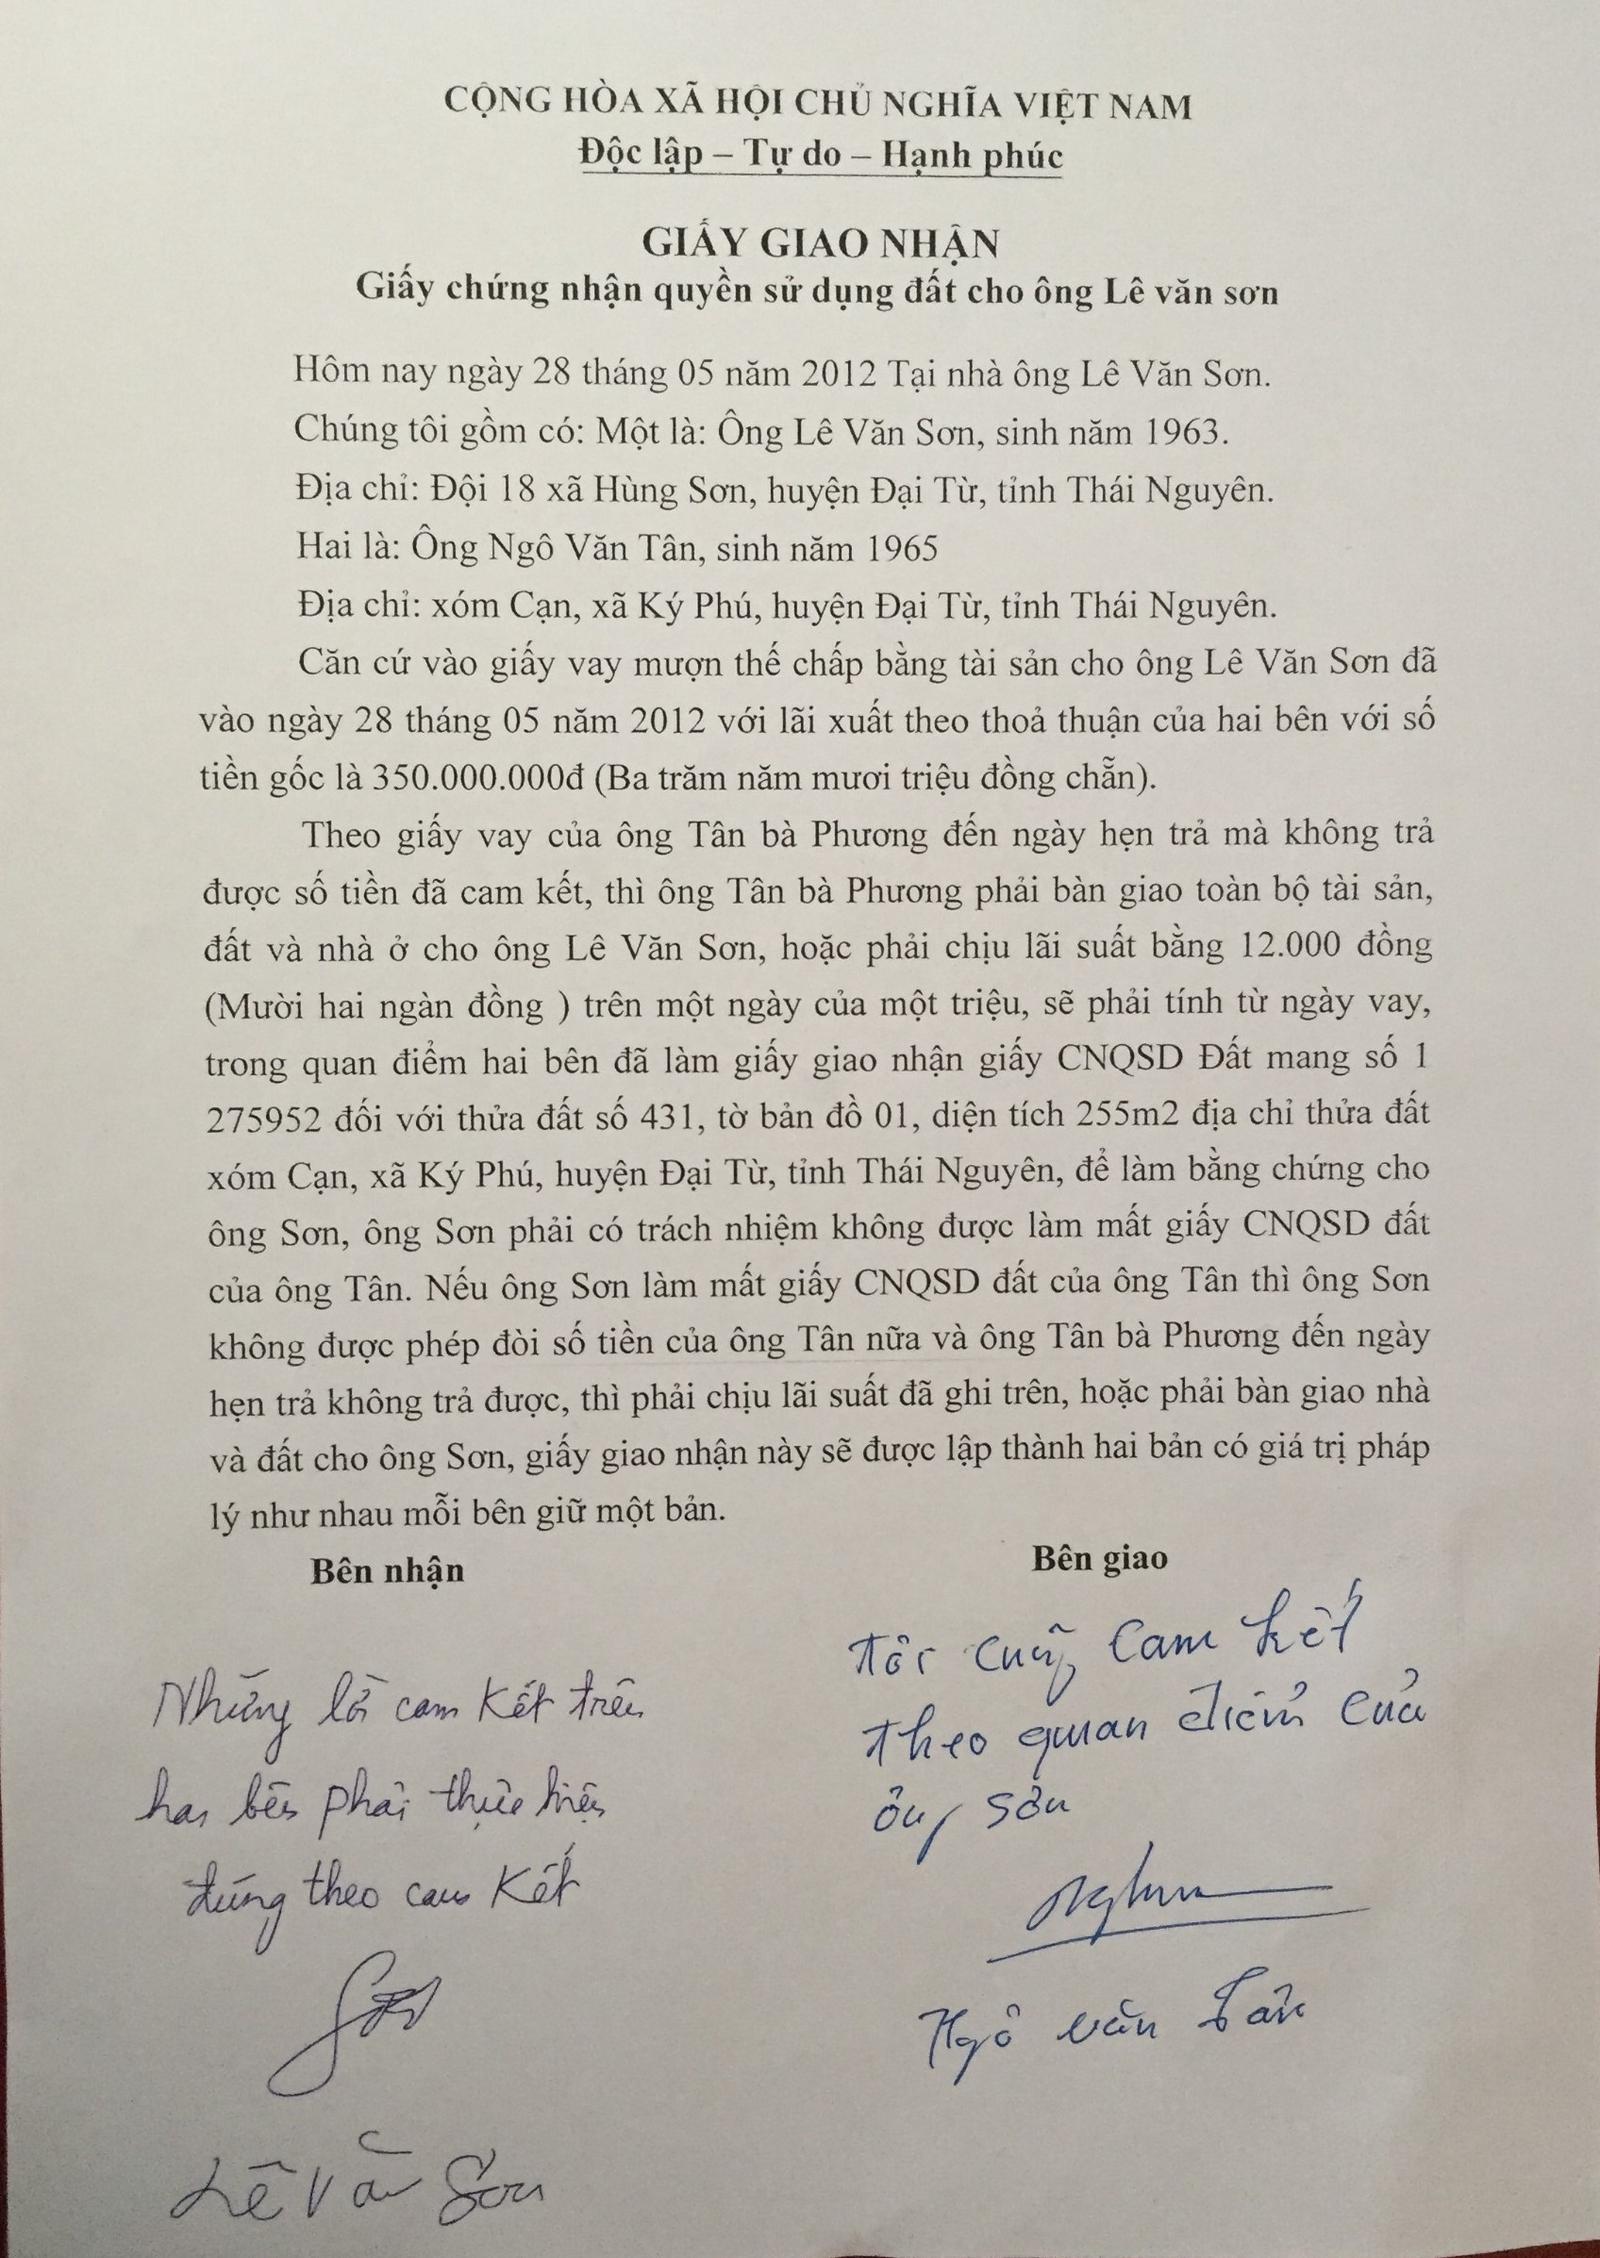 CỘNG HÒA XÃ HỘI CHỦ NGHĨA VIỆT NAM
Độc lập – Tự do – Hạnh phúc
GIẤY GIAO NHẬN
Giấy chứng nhận quyền sử dụng đất cho ông Lê văn sơn
Hôm nay ngày 28 tháng 05 năm 2012 Tại nhà ông Lê Văn Sơn.
Chúng tôi gồm có: Một là: Ông Lê Văn Sơn, sinh năm 1963.
Địa chỉ: Đội 18 xã Hùng Sơn, huyện Đại Từ, tỉnh Thái Nguyên.
Hai là: Ông Ngô Văn Tân, sinh năm 1965
Địa chỉ: xóm Cạn, xã Ký Phú, huyện Đại Từ, tỉnh Thái Nguyên.
Căn cứ vào giấy vay mượn thế chấp bằng tài sản cho ông Lê Văn Sơn đã
vào ngày 28 tháng 05 năm 2012 với lãi xuất theo thoả thuận của hai bên với số
tiền gốc là 350.000.000đ (Ba trăm năm mươi triệu đồng chẵn).
Theo giấy vay của ông Tân bà Phương đến ngày hẹn trả mà không trả
được số tiền đã cam kết, thì ông Tân bà Phương phải bàn giao toàn bộ tài sản,
đất và nhà ở cho ông Lê Văn Sơn, hoặc phải chịu lãi suất bằng 12.000 đồng
(Mười hai ngàn đồng ) trên một ngày của một triệu, sẽ phải tính từ ngày vay,
trong quan điểm hai bên đã làm giấy giao nhận giấy CNQSD Đất mang số 1
275952 đối với thửa đất số 431, tờ bản đồ 01, diện tích 255m2 địa chỉ thửa đất
xóm Cạn, xã Ký Phú, huyện Đại Từ, tỉnh Thái Nguyên, để làm bằng chứng cho
ông Sơn, ông Sơn phải có trách nhiệm không được làm mất giấy CNQSD đất
của ông Tân. Nếu ông Sơn làm mất giấy CNQSD đất của ông Tân thì ông Sơn
không được phép đòi số tiền của ông Tân nữa và ông Tân bà Phương đến ngày
hẹn trả không trả được, thì phải chịu lãi suất đã ghi trên, hoặc phải bàn giao nhà
và đất cho ông Sơn, giấy giao nhận này sẽ được lập thành hai bản có giá trị pháp
lý như nhau mỗi bên giữ một bản.
Bên nhận
Những lời cam kết trên
hai bên phải thực hiện
đúng theo cam kết
Sơn
Lê Văn Sơn
Bên giao
Tôi cũng cam kết
theo quan điểm của
ông sơn
Ngô văn Tân